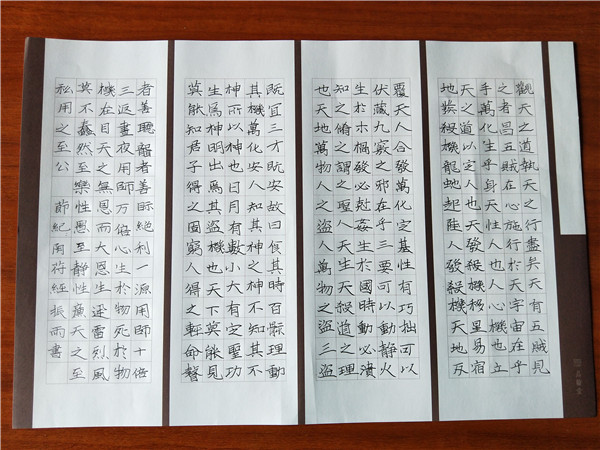 觀天之道執天之行盡矣天有五賊見
之者昌五賊在心施行於天宇宙在乎
手萬化生乎身天性人也人心機也立
天之道以定人也天發殺機移星易宿
地發殺機龍蛇起陸人發殺機天地反
覆天人合發萬化定基性有巧拙可以
伏藏九竅之邪在乎三要可以動靜火
生於木禍發必尅姦生於國時動必潰
知之脩之謂之聖人天生天殺道之理
也天地萬物人之盜人萬物之盜三盜
既宜三才既安故曰食其時百骸理動
其機萬化安人知其神之神不知其不
神所以神也日月有數小大有定聖功
生焉神明出焉其盜機也天下莫能見
莫能知君子得之固窮人得之輕命瞽
者善聽聾者善眎絕利一源用師十倍
三返晝夜用師万倍心生於物死於物
機在目天之無恩而大恩生迅雷烈風
莫不蠢然至樂性愚至靜性廉天之至
私用之至公 節 陰符經 振雨書